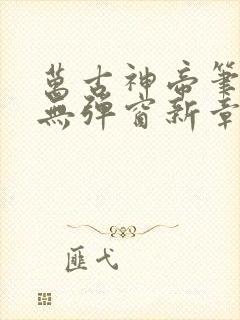 萬古神帝筆
無彈窗新章
匪弋